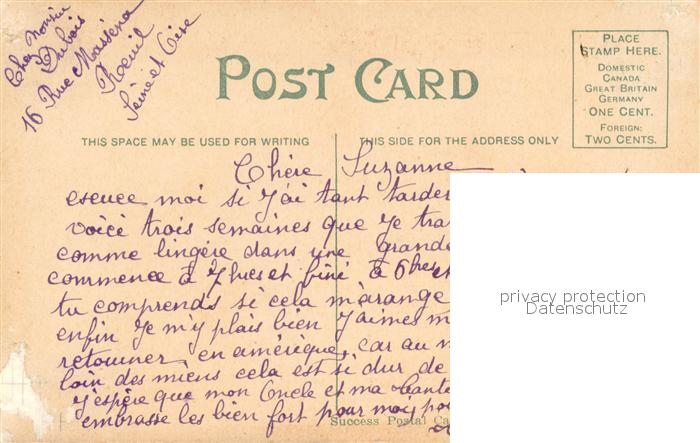 Chez Monsieur
Dubois
16 Rue Massena
Rueil
Seine et Oise
POST CARD
PLACE
STAMP HERE.
DOMESTIC
CANADA
GREAT BRITAIN
GERMANY
ONE CENT.
FOREIGN:
TWO CENTS.
THIS SPACE MAY BE USED FOR WRITING
THIS SIDE FOR THE ADDRESS ONLY
Chère Suzanne
escuce moi si j'ai tant tarder
voici trois semaines que je tra
comme lingère dans une grande
commence à 7 hres et fini à 6 hres et
tu comprends si cela m'arange
enfin je m'y plais bien j'aimes m
retourner en amérique, car au m
loin des miens cela est si dur de
j'espère que mon Oncle et ma tante
embrasse les bien fort pour moi
Success Postal Ca
privacy protection
Datenschutz